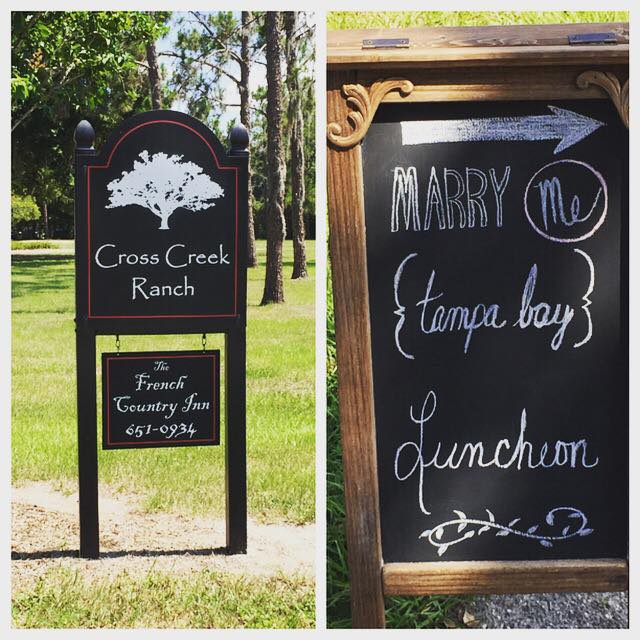 Cross Creek
Ranch
The
French
Country Inn
651-0934
MARRY Me
{tampa bay}
Luncheon